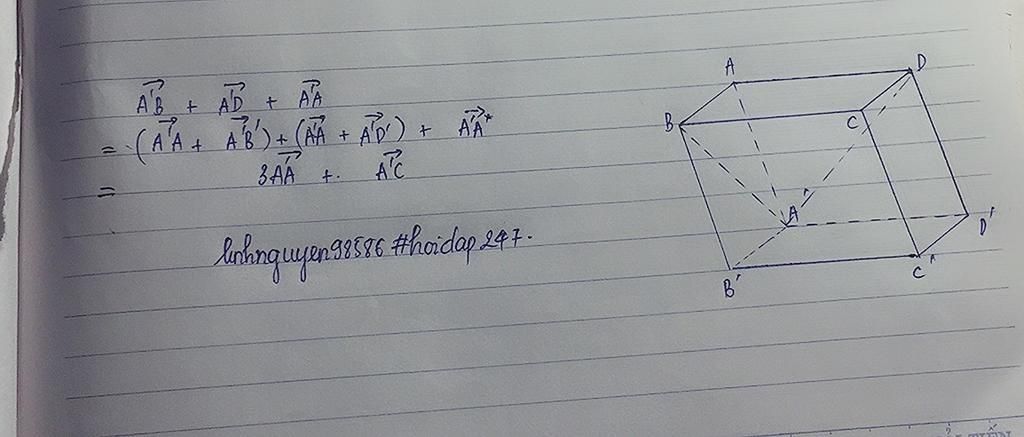 A'B + A'D + A'A
= (A'A + A'B') + (A'A + A'D') + A'A
= 3A'A + A'C
linhnguyen98586 #hoidap247.
A
D
B
C
A'
D'
B'
C'